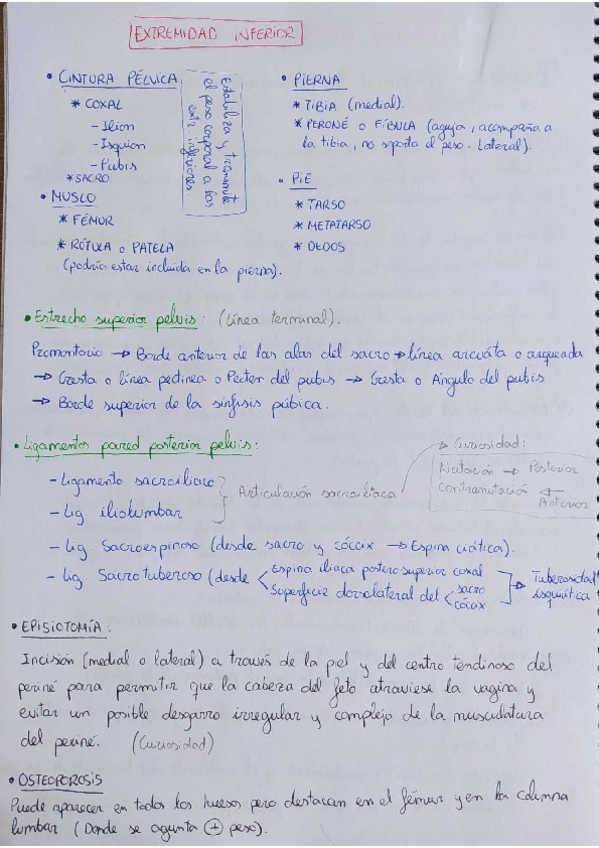 EXTREMIDAD INFERIOR
• CINTURA PÉLVICA
* COXAL
- Ilion
- Isquion
- Pubis
* SACRO
Estabiliza y transmite
el peso corporal a las
extr. inferiores.
• MUSLO
* FÉMUR
* RÓTULA o PATELA
(podría estar incluida en la pierna).
• PIERNA
* TIBIA (medial).
* PERONÉ o FÍBULA (aguja, acompaña a
la tibia, no soporta el peso. Lateral).
• PIE
* TARSO
* METATARSO
* DEDOS
• Estrecho superior pelvis: (Línea terminal).
Promontorio → Borde anterior de las alas del sacro → línea arcuata o arqueada
→ Cresta o línea pectínea o Pecten del pubis → Cresta o Ángulo del pubis
→ Borde superior de la sínfisis púbica.
• Ligamentos pared posterior pelvis:
- Ligamento sacroilíaco
- Lig. iliolumbar
Articulación sacroilíaca
→ Curiosidad:
Nutación → Posterior
Contranutación ← Anterior
- Lig. Sacroespinoso (desde sacro y cóccix → Espina ciática).
- Lig. Sacrotuberoso (desde < Espina ilíaca postero superior coxal
Superficie dorsolateral del < sacro
cóccix
→ Tuberosidad
isquiática)
• EPISIOTOMÍA:
Incisión (medial o lateral) a través de la piel y del centro tendinoso del
periné para permitir que la cabeza del feto atraviese la vagina y
evitar un posible desgarro irregular y complejo de la musculatura
del periné. (Curiosidad)
• OSTEOPOROSIS
Puede aparecer en todos los huesos pero destacan en el fémur y en la columna
lumbar (Donde se aguanta ⊕ peso).